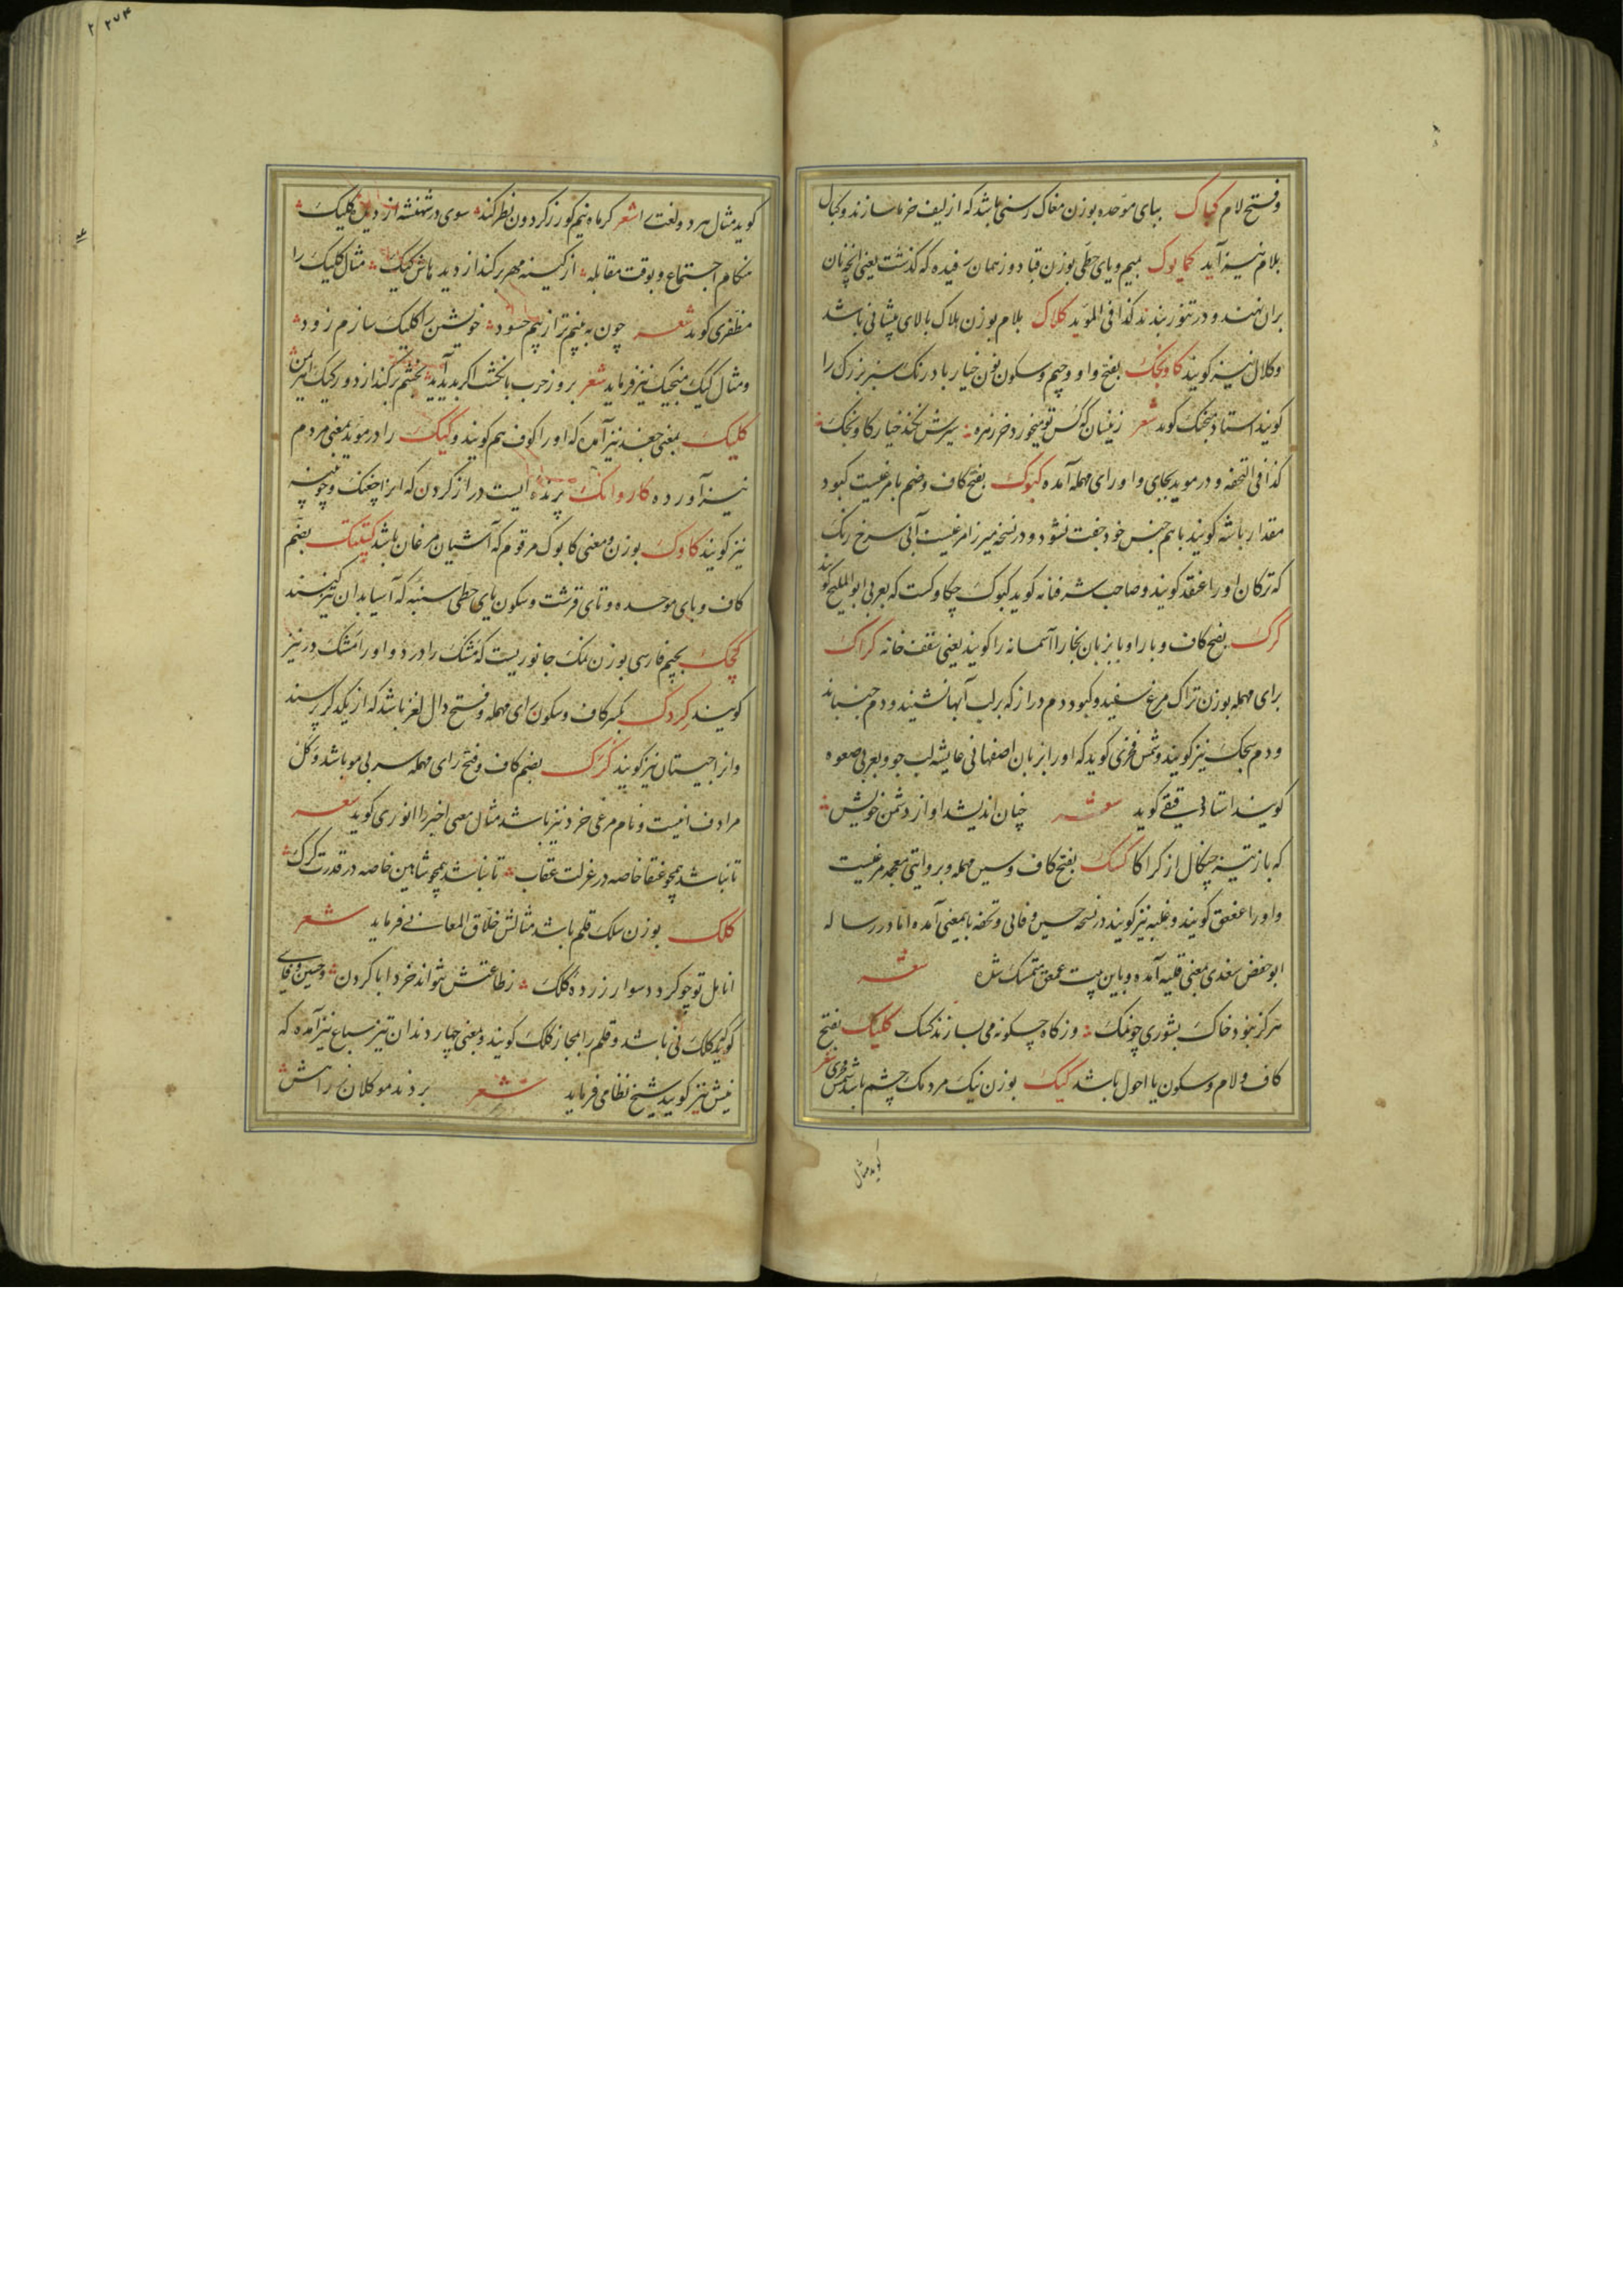 وفتح لام کباک ببای موحده بوزن مغاک رسنی باشد که از لیف خرما سازند و کبال
بلام نیز آید کمایوک بمیم و یای حطی بوزن قباد و زهمان رفیده که گذشت یعنی آنچه نان
بران نهند و در تنور بندند کذا فی المؤید کلاک بلام بوزن هلاک بالای پیشانی باشد
و کلال نیز گویند کاونجک بفتح واو و جیم و سکون نون خیار بادرنک سبز بزرک را
گویند استاد منجیک گوید شعر زینسان که کس تو میخورد خرزه سیرش نکند خیار کاونجک
کذا فی التحفه و در موید بجای واو رای مهمله آمده کبوک بفتح کاف و ضم با مرغیست کبود
مقدار باشه گویند با هم جنس خود جفت نشود و در نسخه میرزا مرغیست آبی سرخ رنک
که ترکان او را عنقد گویند و صاحب شرفنامه گوید کبوک چکاوکست که بعربی ابو الملیح گویند
گرک بفتح کاف و با را و با بزبان بخارا آسمانه را گویند یعنی سقف خانه کراک
برای مهمله بوزن تراک مرغ سفید و کبود دم دراز که بر لب آبها نشیند و دم جنباند
و دم سیجک نیز گویند و شمس فخری گوید که او را بزبان اصفهانی عایشه لب جو و بعربی صعوه
گویند استاد دقیقی گوید شعر چنان اندیشد او از دشمن خویش
که باز تیز چنگال از کراکا کسک بفتح کاف و سین مهمله و بروایتی معجمه مرغیست
و او را عقعق گویند و غلبه نیز گویند در نسخه حسین وفائی و تحفه باینمعنی آمده اما در رساله
ابو حفص سغدی بمعنی قلیه آمده و باین بیت عمعق متمسک شده شعر
هرگز نبود خاک بشوری چو نمک و ز کاه چگونه می سازند کسک کلیک بفتح
کاف و لام و سکون یا احول باشد کیک بوزن نیک مردمک چشم باشد شمس فخری
گوید مثال
گوید مثال هر دو لغت را شعر کر ماه نیم کور ز گردون نظر کند سوی در شهنشه از دیده کلیک
هنکام اجتماع و بوقت مقابله از کینه مهر بر کند از دیدهاش کیک مثال کلیک را
مظفری گوید شعر چون به بینم ترا ز بیم حسود خویشتن را کلیک سازم زود
و مثال کیک منجیک نیز فرماید شعر بروز حرب بانگشت اگر پدید آید بخشم برکند از دور کیک اهریمن
کلیک بمعنی جغد نیز آمده که او را کوف هم گویند و کیک را در موید بمعنی مردم
نیز آورده کاروانک پرنده ایست دراز گردن که آنرا چغنک و چوبینه
نیز گویند کاوک بوزن و معنی کابوک مرقوم که آشیان مرغان باشد کبتک بضم
کاف و بای موحده و تای قرشت و سکون یای حطی سنبه که آسیا بدان تیز کنند
کچک بجیم فارسی بوزن نمک جانوریست که مشک را درد و او را مشک در نیز
گویند کردک بکسر کاف و سکون رای مهمله و فتح دال لغز باشد که از یکدگر پرسند
و انرا چیستان نیز گویند کرک بضم کاف و فتح رای مهمله سر بی مو باشد و کل
مرادف انیست و نام مرغی خرد نیز باشد مثال معنی اخیر را انوری گوید شعر
تا نباشد همچو عنقا خاصه در عزلت عقاب تا نباشد همچو شاهین خاصه در قدرت کرک
کلک بوزن سلک قلم باشد مثالش خلاق المعانی فرماید شعر
انامل تو چو کردد سوار زرده کلک ز طاعتش نتواند خرد ابا کردن و حسین وفائی
گوید کلک نی باشد و قلم را بمجاز کلک گویند و بمعنی چهار دندان تیز سباع نیز آمده که
نیش نیز گویند شیخ نظامی فرماید شعر بردند موکلان راهش